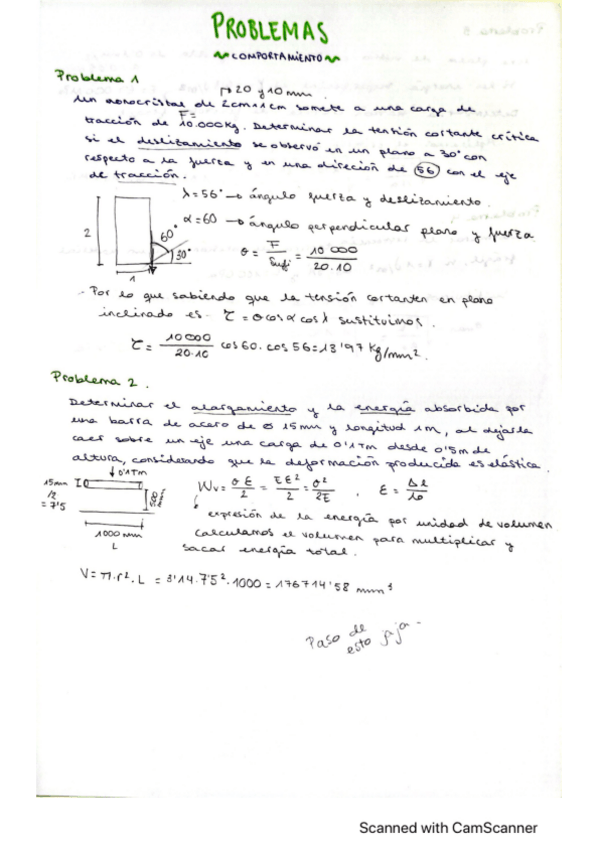 PROBLEMAS
~COMPORTAMIENTO~
Problema 1
→ 20 y 10 mm.
Un monocristal de 2cm×1cm somete a una carga de
F=
tracción de 10.000kg. Determinar la tensión cortante crítica
si el deslizamiento se observó en un plano a 30° con
respecto a la fuerza y en una direción de 56 con el eje
de tracción.
λ=56° → ángulo fuerza y deslizamiento.
α=60 → ángulo perpendicular plano y fuerza
2
60°
30°
1
σ = F / Supi = 10000 / 20.10
- Por lo que sabiendo que la tensión cortanten en plano
inclinado es - τ = σ cos α cos λ sustituimos.
τ = 10000 / 20.10 cos 60. cos 56 = 13'97 Kg/mm².
Problema 2.
Determinar el alargamiento y la energía absorbida por
una barra de acero de ø 15mm y longitud 1m, al dejarla
caer sobre un eje una carga de 0'1Tm desde 0'5m de
altura, considerando que la deformación producida es elástica.
↓0'1Tm
15mm
/2
= 7'5
1000 mm
L
Wv = σE / 2 = EE² / 2 = σ² / 2E , ε = Δl / lo
expresión de la energía por unidad de volumen
calculamos el volumen para multiplicar y
sacar energía total.
V = π.r².L = 3'14.7'5².1000 = 176714'58 mm³
Paso de
esto jaja.
Scanned with CamScanner